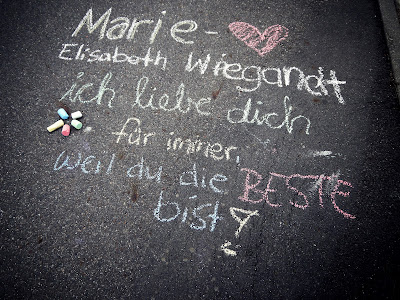 Marie-
Elisabeth Wiegandt
ich liebe dich
für immer,
weil du die BESTE
bist!